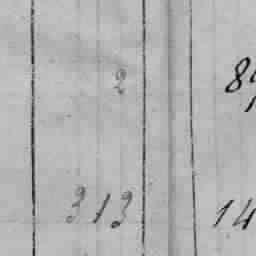 2 8
313 14